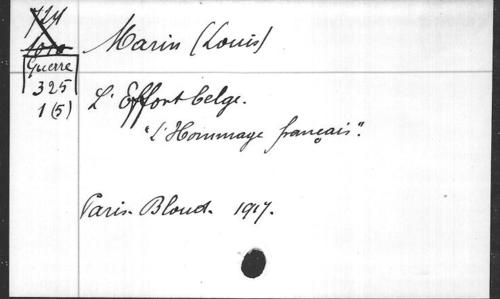 Marin (Louis)
Guerre
325
1 (5)
L'Effort belge.
"L'Hommage français".
Paris. Bloud. 1917.